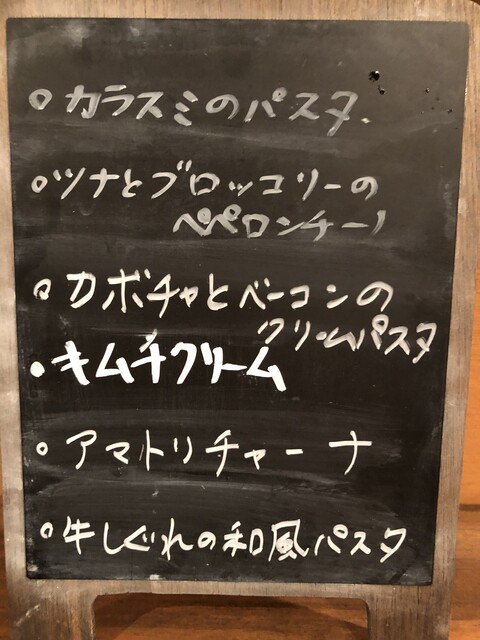 ○ カラスミのパスタ.
○ ツナとブロッコリーの
ペペロンチーノ
○ カボチャとベーコンの
クリームパスタ
● キムチクリーム
○ アマトリチャーナ
○ 牛しぐれの和風パスタ